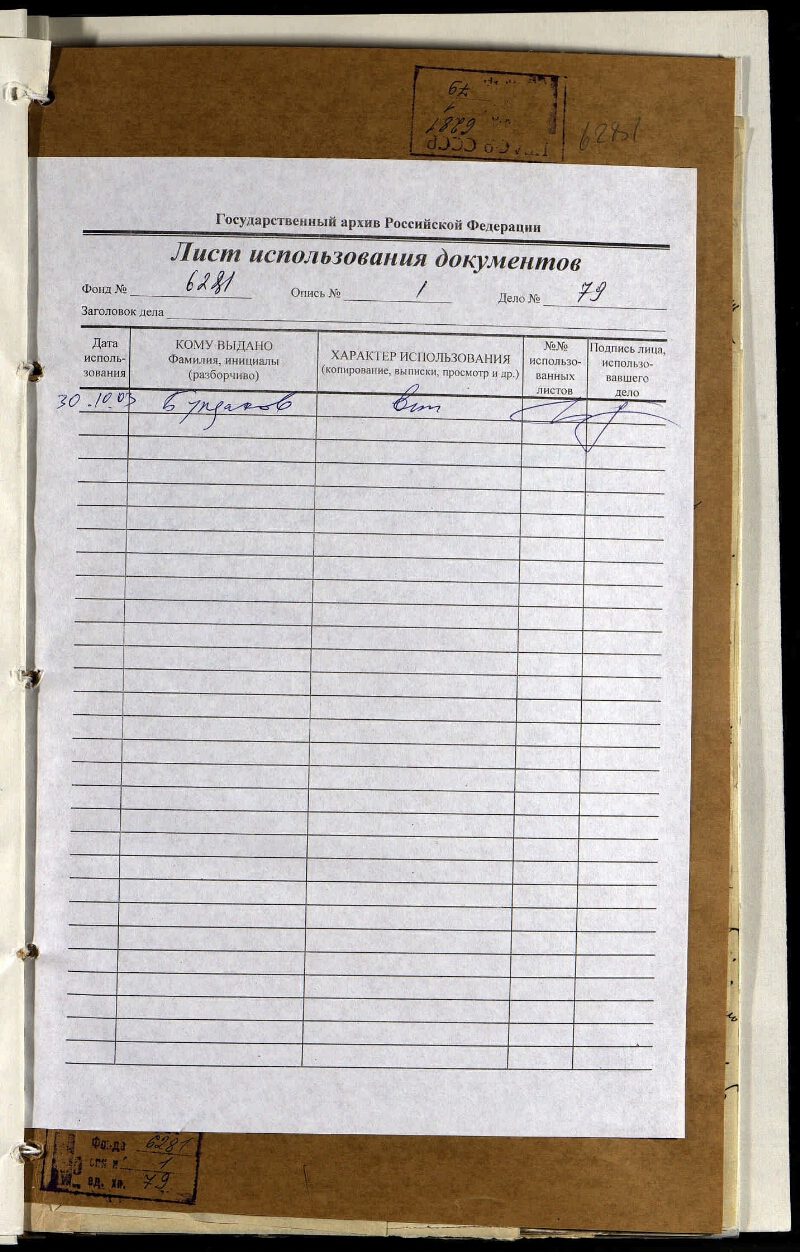 6281
79
1
6281
СССР
Государственный архив Российской Федерации
Лист использования документов
Фонд № 6281 Опись № 1 Дело № 79
Заголовок дела
Дата исполь- зования
КОМУ ВЫДАНО Фамилия, инициалы (разборчиво)
ХАРАКТЕР ИСПОЛЬЗОВАНИЯ (копирование, выписки, просмотр и др.)
№№ использо- ванных листов
Подпись лица, использо- вавшего дело
30.10.03
Фонда 6281
1
ед. хр. 79